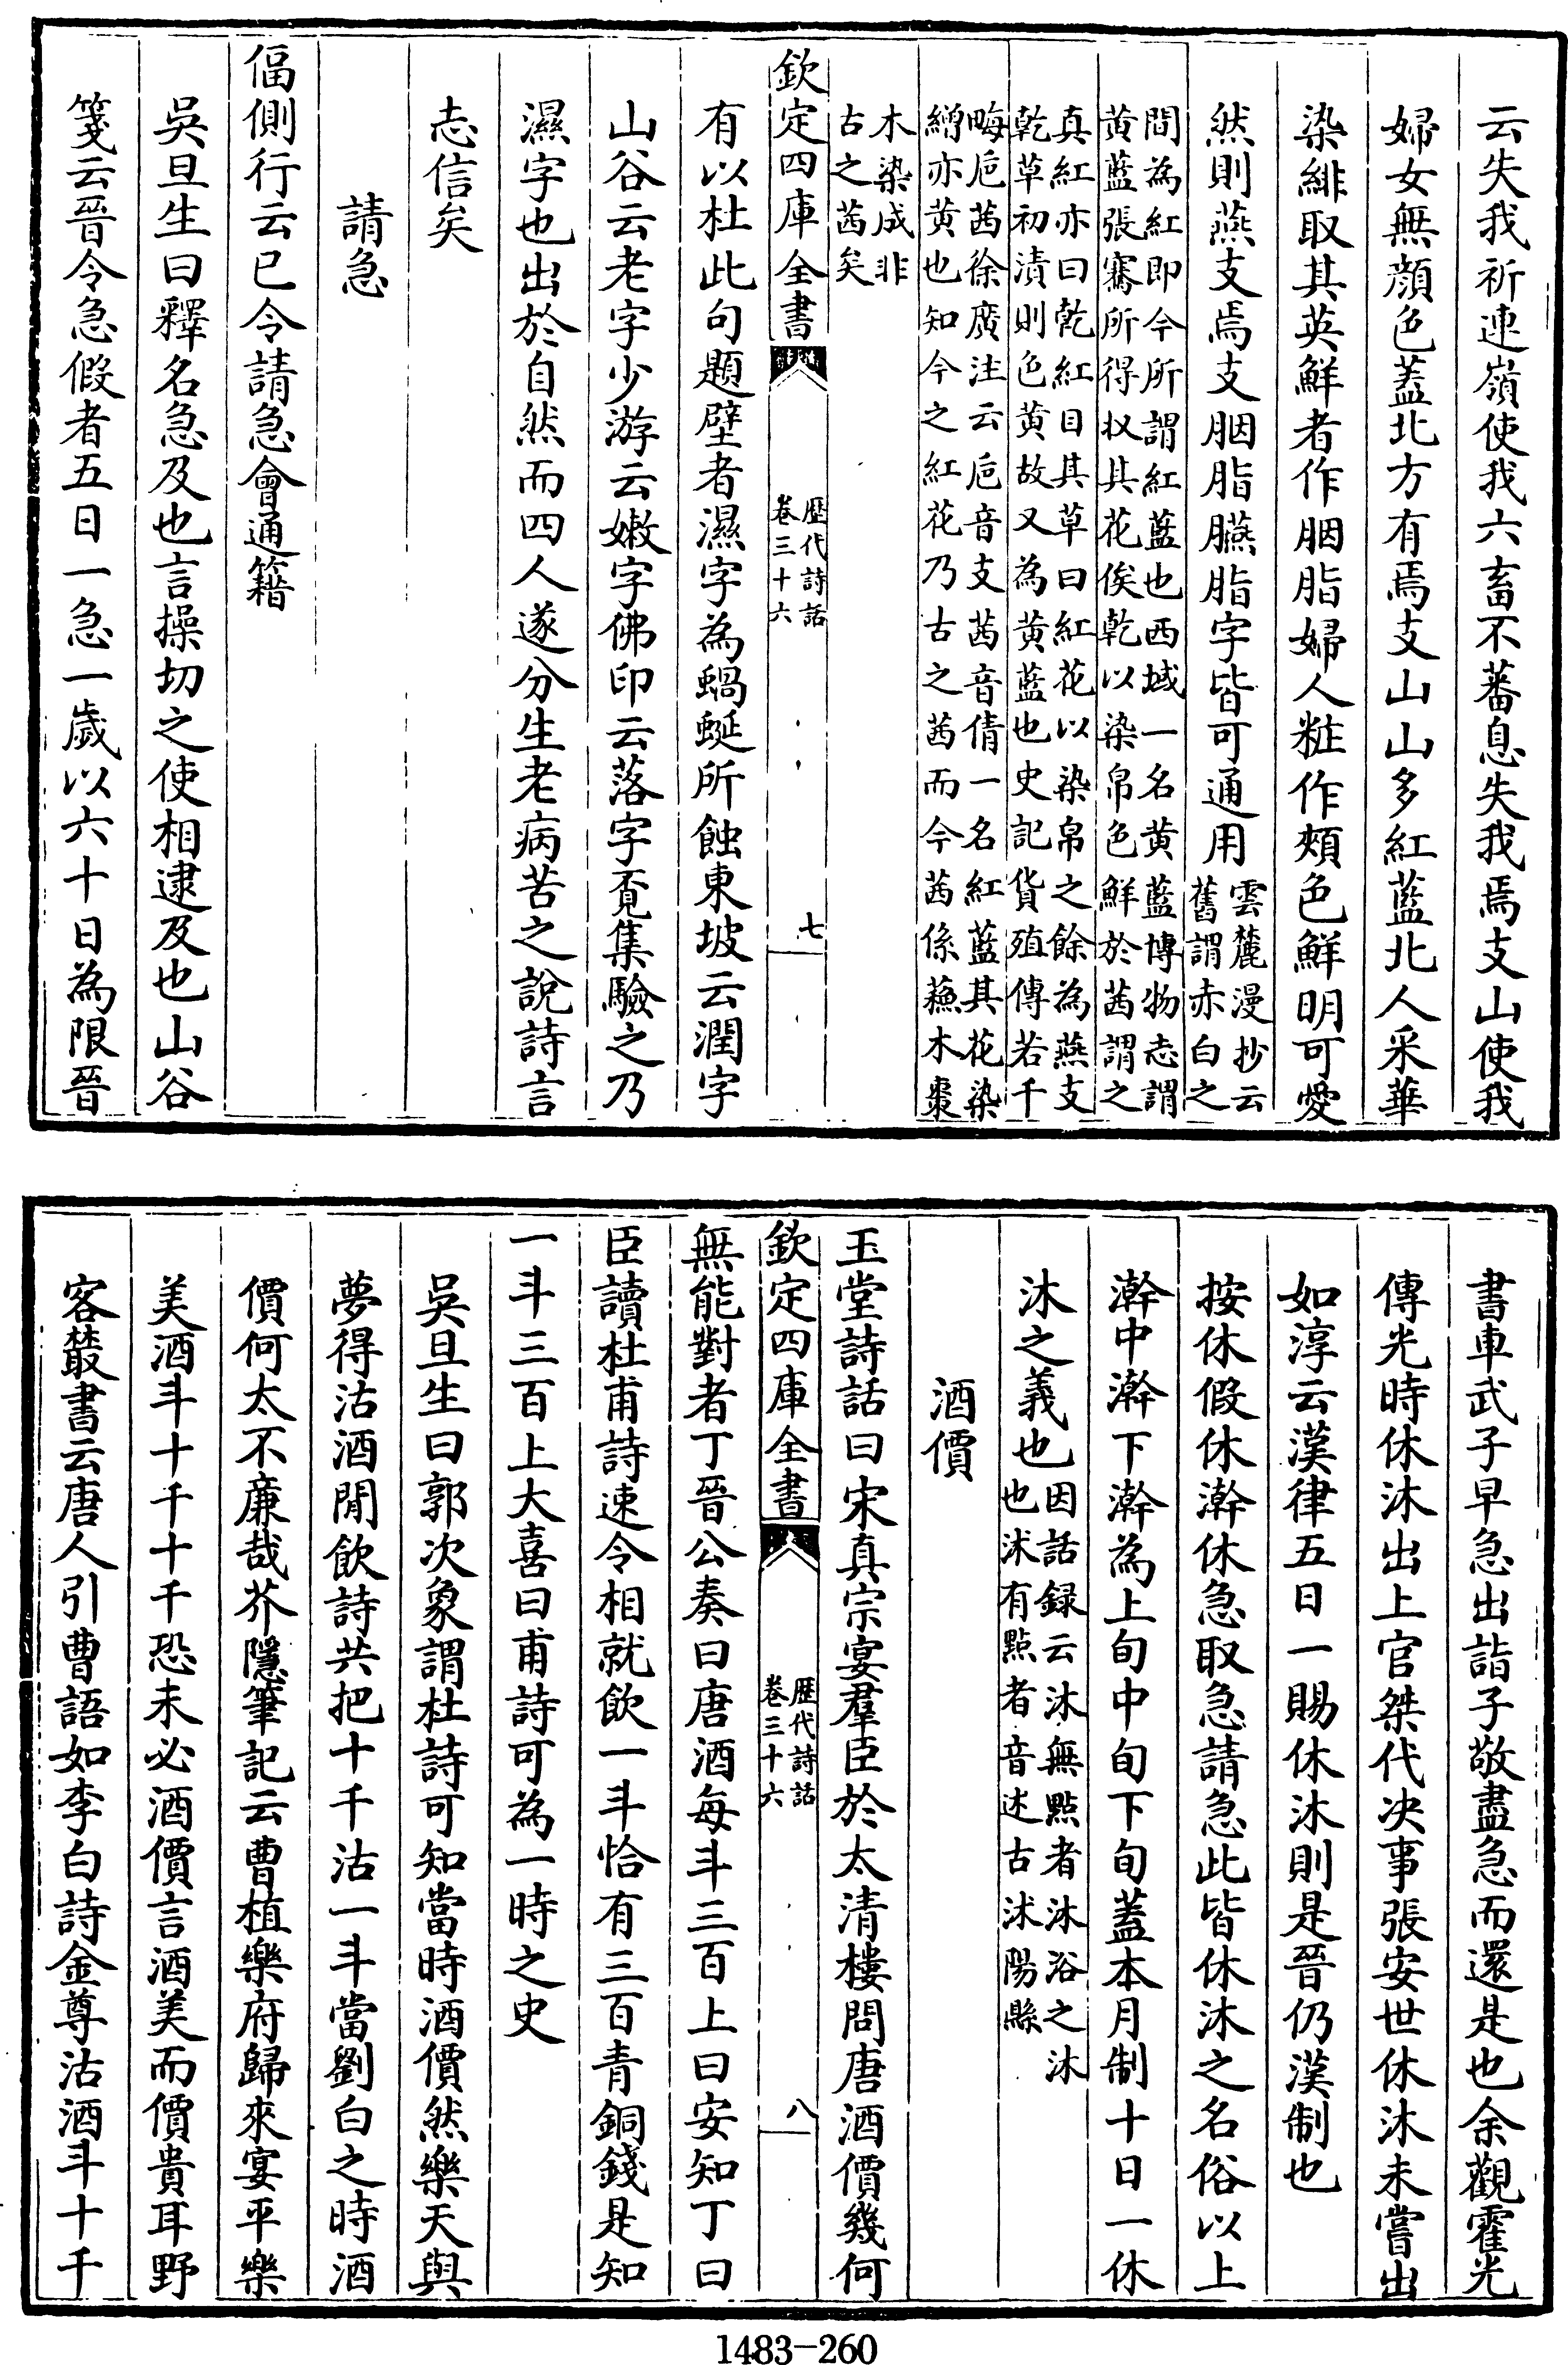 云失我祈連嶺使我六畜不蕃息失我焉支山使我
婦女無顔色蓋北方有焉支山山多紅藍北人采華
染緋取其英鮮者作胭脂婦人粧作頰色鮮明可愛
然則燕支焉支胭脂臙脂字皆可通用
雲麓漫抄云
舊謂赤白之
間為紅即今所謂紅藍也西域一名黄藍博物志謂
黄藍張騫所得㧞其花俟乾以染帛色鮮於茜謂之
真紅亦曰乾紅目其草曰紅花以染帛之餘為燕支
乾草初漬則色黄故又為黄藍也史記貨殖傳若千
畮巵茜徐廣注云巵音支茜音倩一名紅藍其花染
繒亦黄也知今之紅花乃古之茜而今茜係蘓木棗
木染成非
古之茜矣
欽定四庫全書
歴代詩話
卷三十六
七
有以杜此句題壁者濕字為蝸蜒所蝕東坡云潤字
山谷云老字少游云嫩字佛印云落字覓集驗之乃
濕字也出於自然而四人遂分生老病苦之說詩言
志信矣
請急
偪側行云已令請急會通籍
吳旦生曰釋名急及也言操切之使相逮及也山谷
箋云晉令急假者五日一急一歲以六十日為限晉
書車武子早急出詣子敬盡急而還是也余觀霍光
傳光時休沐出上官桀代决事張安世休沐未嘗出
如淳云漢律五日一賜休沐則是晉仍漢制也
按休假休澣休急取急請急此皆休沐之名俗以上
澣中澣下澣為上旬中旬下旬蓋本月制十日一休
沐之義也
因話録云沐無點者沐浴之沐
也沭有點者音述古沭陽縣
酒價
玉堂詩話曰宋真宗宴羣臣於太清樓問唐酒價幾何
欽定四庫全書
歴代詩話
卷三十六
八
無能對者丁晉公奏曰唐酒每斗三百上曰安知丁曰
臣讀杜甫詩速令相就飲一斗恰有三百青銅錢是知
一斗三百上大喜曰甫詩可為一時之史
吳旦生曰郭次象謂杜詩可知當時酒價然樂天與
夢得沽酒閒飲詩共把十千沽一斗當劉白之時酒
價何太不廉哉芥隱筆記云曹植樂府歸來宴平樂
美酒斗十千十千恐未必酒價言酒美而價貴耳野
客叢書云唐人引曹語如李白詩金尊沽酒斗十千
1483-260